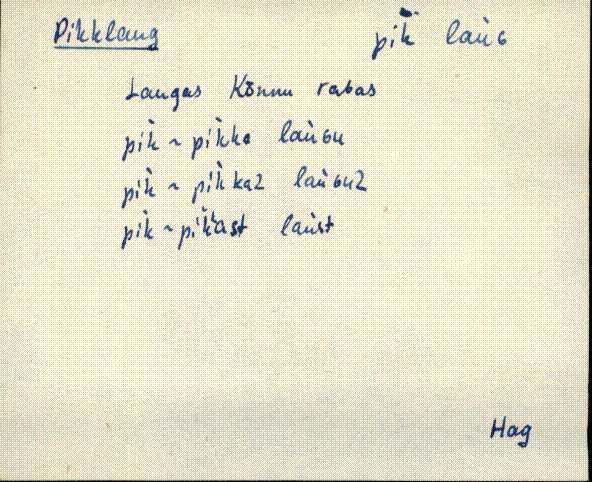 Pikklaug pik̀ laùɢ
Laugas Kõnnu rabas
pik̀ ~ pik̀ka laùɢu
pik̀ ~ pik̀kaz laùɢuz
pik̀ ~ pik̀kast laùst
Hag